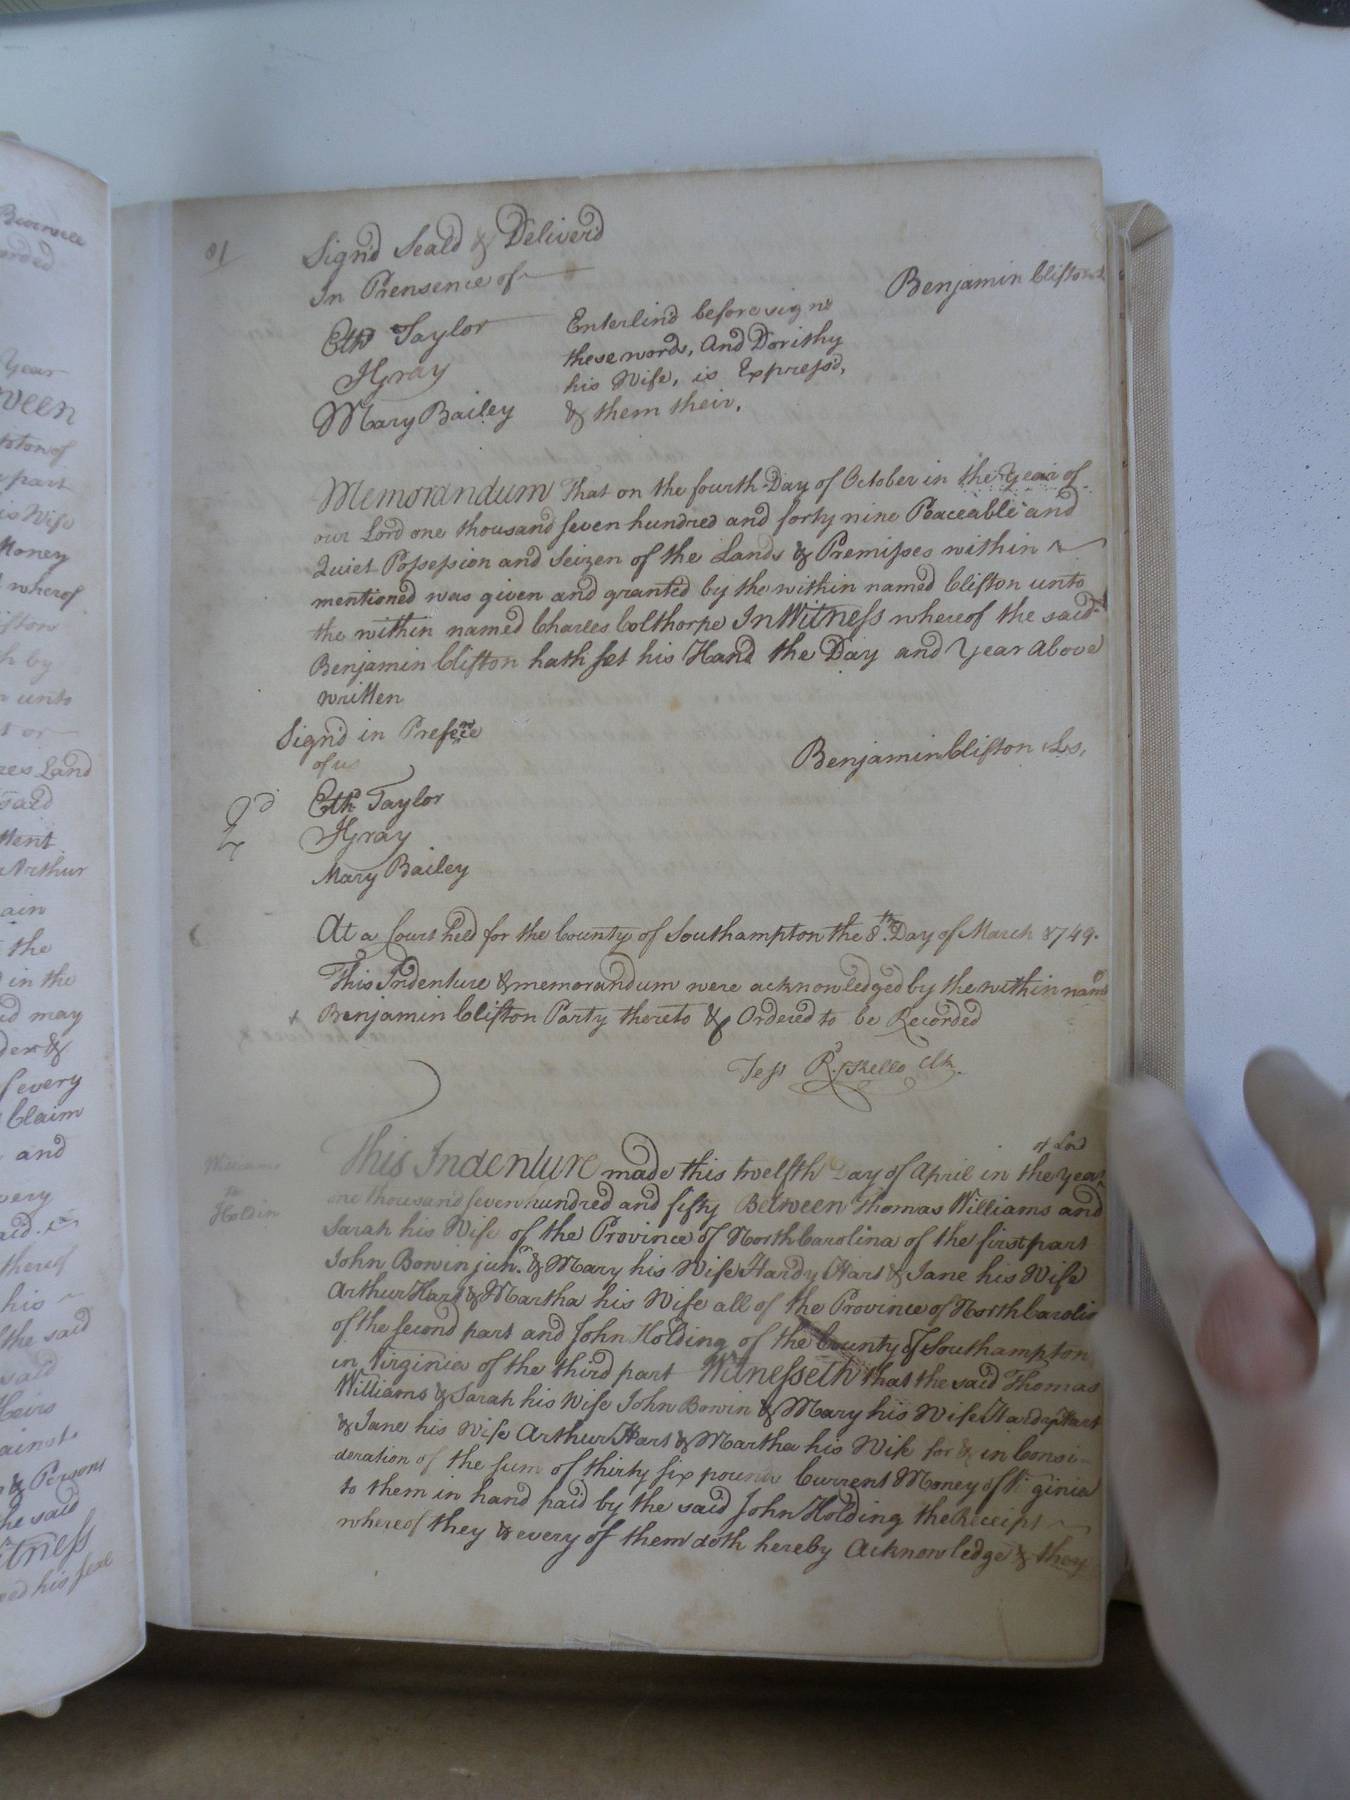 Beverell
orded
Year
ween
part
is Wife
Money
wherof
Clifton
h by
unto
or
res Land
said
Ment
Arthur
ain
the
in the
id may
der &
every
Claim
and
very
aid.
thereof
his
the said
said
Heirs
ainst
& Persons
he said
itness
ed his seal
81
Sign'd Seald & Deliver'd
In Prensence of
Benjamin Clifton
Eth Taylor
JGray
Mary Bailey
Enterlind before sign
these words, And Dorithy
his Wife, is Express'd,
& them their,
Memorandum That on the fourth Day of October in the Year of
our Lord one thousand seven hundred and forty nine Peaceable and
Quiet Possession and Seizen of the Lands & Premisses within
mentioned was given and granted by the within named Clifton unto
the within named Charles Colthorpe In Witness whereof the said
Benjamin Clifton hath set his Hand the Day and Year above
written
Sign'd in Presence
of us
Benjamin Clifton Ls,
Eth Taylor
JGray
Mary Bailey
At a Court held for the County of Southampton the 8th Day of March 1749.
This Indenture & memorandum were acknowledged by the within nam'd
+ Benjamin Clifton Party thereto & Ordered to be Recorded
Test R. Kello Clk.
Williams
to
Holdin
of Lord
This Indenture made this twelfth Day of April in the Year
one thousand seven hundred and fifty Between Thomas Williams and
Sarah his Wife of the Province of North Carolina of the first part
John Bowin junr. & Mary his Wife Hardy Hart & Jane his Wife
Arthur Hart & Martha his Wife all of the Province of North Carolin
of the second part and John Holding of the County of Southampton
in Virginia of the third part Witnesseth that the said Thomas
Williams & Sarah his Wife John Bowin & Mary his Wife Hardy Hart
& Jane his Wife Arthur Hart & Martha his Wife for & in Consi-
deration of the sum of thirty six pounds Current Money of Virginia
to them in hand paid by the said John Holding the Receipt
whereof they & every of them doth hereby Acknowledge & they